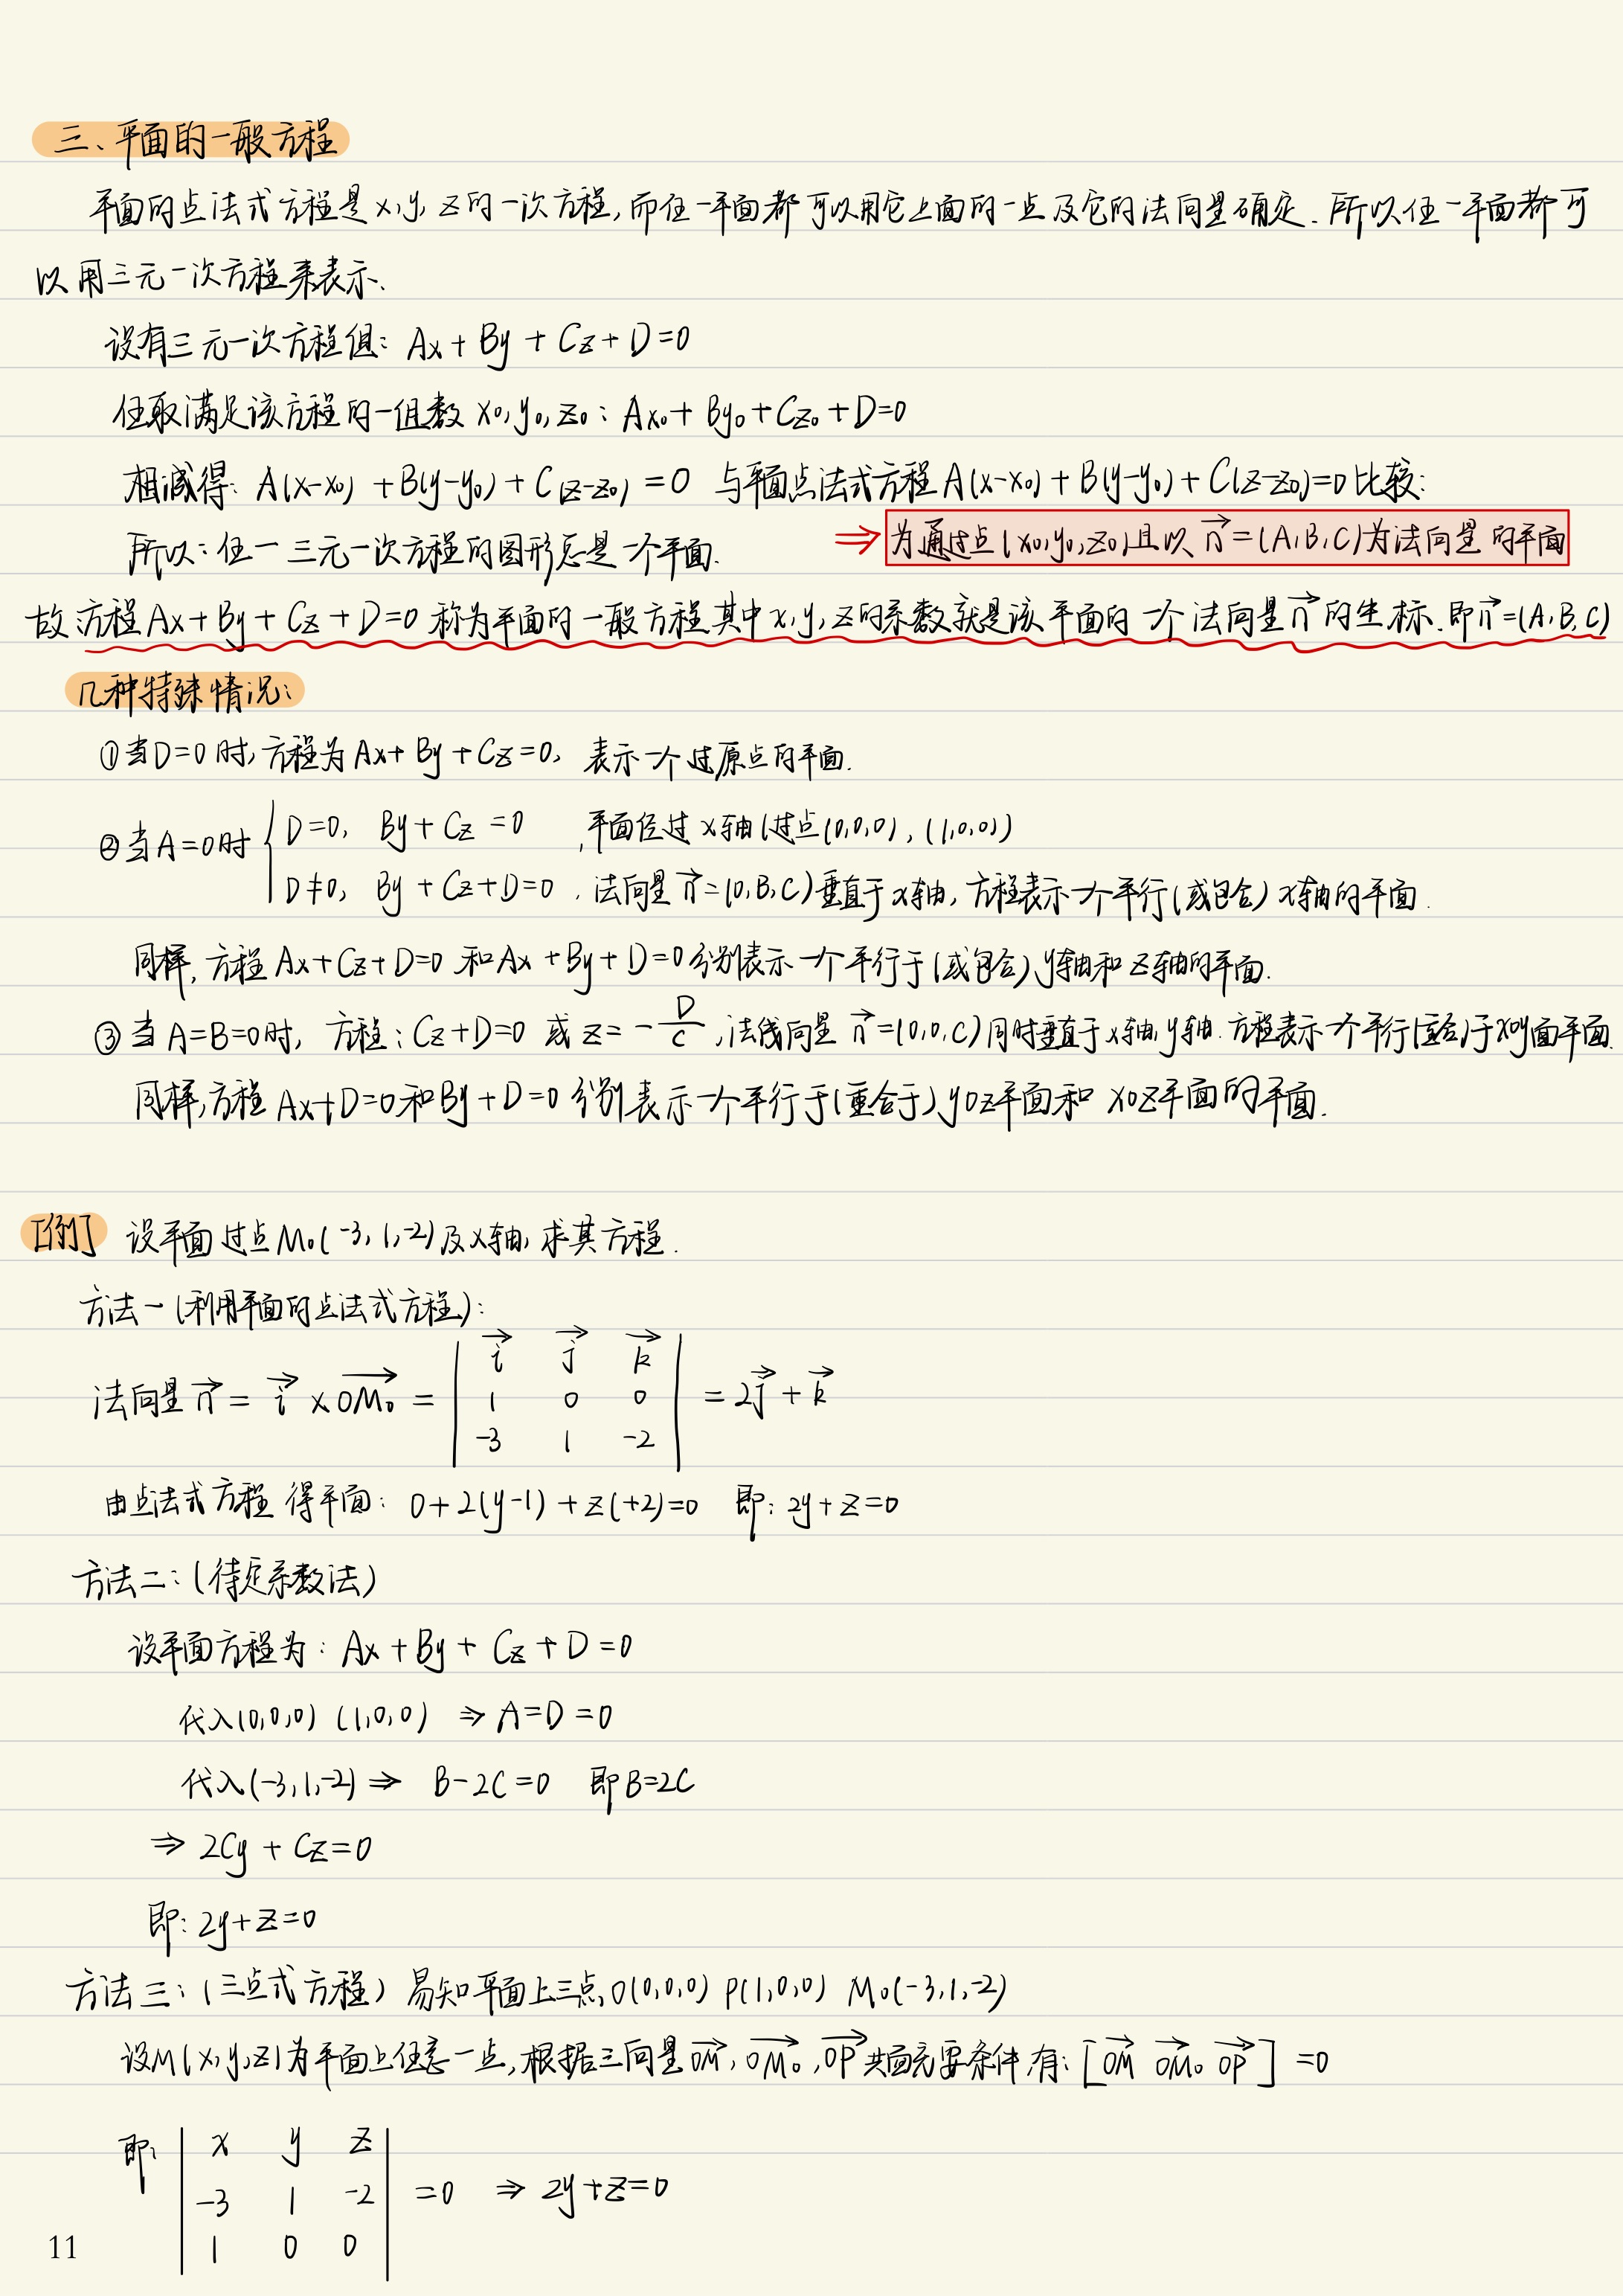 三、平面的一般方程
平面的点法式方程是x,y,z的一次方程,而任一平面都可以用它上面的一点及它的法向量确定.所以任一平面都可
以用三元一次方程来表示.
设有三元一次方程组: Ax+By+Cz+D=0
任取满足该方程的一组数 x₀,y₀,z₀: Ax₀+By₀+Cz₀+D=0
相减得: A(x-x₀)+B(y-y₀)+C(z-z₀)=0 与平面点法式方程A(x-x₀)+B(y-y₀)+C(z-z₀)=0比较:
所以:任一三元一次方程的图形总是一个平面. ⇒ 为通过点(x₀,y₀,z₀)且以 n⃗=(A,B,C)为法向量的平面
故:方程Ax+By+Cz+D=0 称为平面的一般方程.其中x,y,z的系数就是该平面的一个法向量n⃗的坐标.即n⃗=(A,B,C)
几种特殊情况:
①当D=0时,方程为Ax+By+Cz=0, 表示一个过原点的平面.
②当A=0时 { D=0, By+Cz=0 ,平面经过x轴(过点(0,0,0),(1,0,0))
D≠0, By+Cz+D=0 ,法向量n⃗=(0,B,C)垂直于x轴,方程表示一个平行(或包含)x轴的平面.
同样,方程Ax+Cz+D=0 和Ax+By+D=0分别表示一个平行于(或包含)y轴和z轴的平面.
③当A=B=0时, 方程:Cz+D=0 或 z=-D/C,法线向量 n⃗=(0,0,C)同时垂直于x轴,y轴.方程表示一个平行(重合)于xoy面平面.
同样,方程 Ax+D=0和By+D=0 分别表示一个平行于(重合于)yoz平面和 xoz平面的平面.
[例] 设平面过点M₀(-3,1,-2)及x轴,求其方程.
方法一(利用平面的点法式方程):
法向量 n⃗ = i⃗ × OM₀⃗ = | i⃗ j⃗ k⃗ | = 2j⃗ + k⃗
| 1 0 0 |
| -3 1 -2 |
由点法式方程得平面: 0+2(y-1)+z(+2)=0 即: 2y+z=0
方法二:(待定系数法)
设平面方程为: Ax+By+Cz+D=0
代入(0,0,0) (1,0,0) ⇒ A=D=0
代入(-3,1,-2) ⇒ B-2C=0 即B=2C
⇒ 2Cy+Cz=0
即: 2y+z=0
方法三:(三点式方程) 易知平面上三点O(0,0,0) P(1,0,0) M₀(-3,1,-2)
设M(x,y,z)为平面上任意一点,根据三向量OM⃗,OM₀⃗,OP⃗共面充要条件,有: [OM⃗ OM₀⃗ OP⃗]=0
即: | x y z |
| -3 1 -2 | =0 ⇒ 2y+z=0
| 1 0 0 |
11